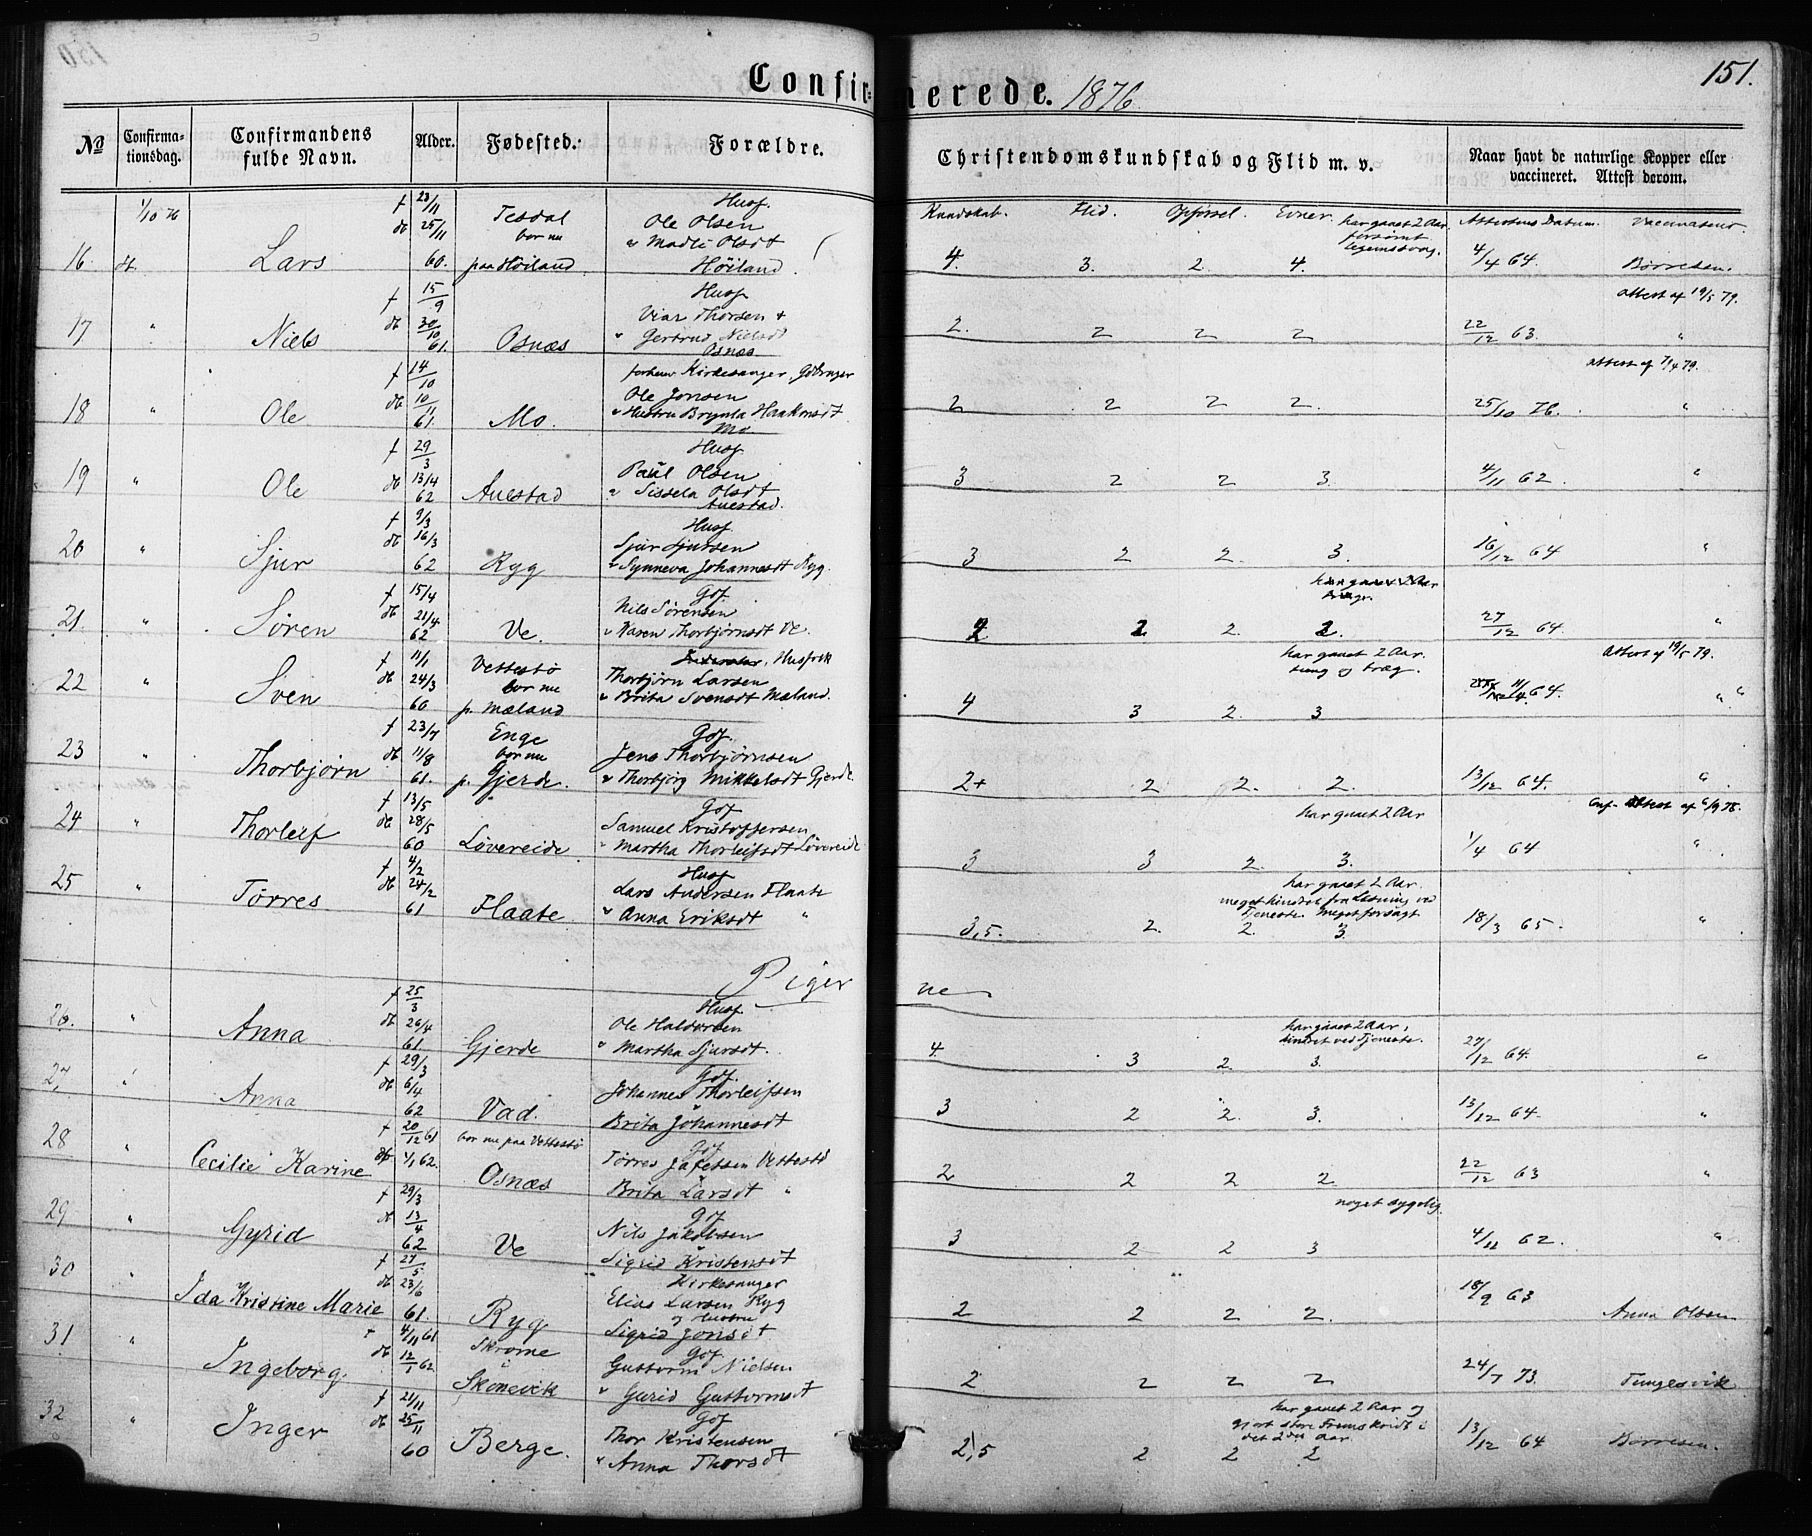 Confirmerede. 1876
151.
No
Confirmationsdag.
Confirmandens fulde Navn.
Alder.
Fødested.
Forældre.
Christendomskundskab og Flid m. v.
Naar havt de naturlige Kopper eller vaccineret. Attest derom.
Kundskab. Flid. Opførsel. Evner. Attestens Datum. Vaccinateur.
16. 1/10 76 Lars f 23/11 db 25/11 60. Tesdal bor nu paa Höiland Husf. Ole Olsen Madli Olsdt Höiland.
4. 3. 2. 4. har gaaet 2 Aar forsømt 4/4 64. Børresen.
17 " Niels f 15/9 db 30/10 61. Osnæs Husf Viar Thorsen Gertrud Nielsdt Osnæs
2. 2 2 2 22/12 63. attest af 19/5 79. "
18 " Ole f 14/10 db 10/11 61. Mo. forhenv. Kirkesanger, Ole Jonsen Hustru Brynla Haakonsdt Mo
2 2 2 2. 25/10 76. attest af 7/4 79. "
19 " Ole f 29/3 db 13/4 62 Auestad Husf Paul Olsen Sissela Olsdt Auestad.
3 2 2 3. 4/11 62. "
20 " Sjur f 9/3 db 16/3 62 Ryg Husf. Sjur Sjursen Synneva Johannesdt Ryg.
3 2 2. 3. 16/12 64 "
21. " Søren f 15/4 db 21/4 62 Ve. Gof. Nils Sørensen Karen Thorbjørnsdt Ve.
2 2. har gaaet 2 Aar 27/12 64. "
22 " Sven f 11/1 db 24/3 60 Vettestø bor nu p. Mæland Husfolk Thorbjörn Larsen Brita Svensdt Mæland.
4 3 2. 3 har gaaet 2 Aar. tung og træg. 11/4 64. Attest af 19/5 79. "
23 " Thorbjörn f 23/7 db 11/8 61. Enge bor nu p. Gjerde. Gof. Jens Thorbjørnsen Thorbjörg Mikkelsdt Gjerde.
2+ 2 2. 2. 13/12 64. "
24 " Thorleif f 13/5 db 28/5 60 Løvereide Gof Samuel Kristoffersen Martha Thorleifsdt Løvereide
3 3 2. 3. har gaaet 2 Aar 1/4 64 Conf. Attest af 6/9 78. "
25 " Tørres f 4/2 db 24/2 61 Flaate Husf Lars Andersen Flaate Anna Eriksdt "
3,5. 2. 2. 3. har gaaet 2 Aar. meget hindret fra Læsning ved Tjeneste. Meget forsagt 18/3 65. "
Piger
26. " Anna f 25/3 db 26/4 61. Gjerde Husf Ole Haldorsen Martha Sjursdt.
4. 3 2. 3. har gaaet 2 Aar, hindret ved Tjeneste. 27/12 64. "
27 " Anna f 29/3 db 6/4 62 Vad. Gof. Johannes Thorleifsen Brita Johannesdt
3 2 2. 3. 13/12 64. "
28 " Cecilie Karine f 20/12 61 db 1/1 62. bor nu paa Vettestø Osnæs Gof Tørres Jafetsen Vettestø Brita Larsdt "
2 2 2 2 22/12 63 "
29 " Gyrid f 29/3 db 13/4 62 Ve Gof Nils Jakobsen Sigrid Kristensdt
3 2 2 3 noget sygelig. 4/11 62. "
30 " Ida Kristine Marie f 27/5 db 23/6 61. Ryg Kirkesanger Elias Larsen Ryg og Hustru Sigrid Jonsdt
2 2 2. 2. 18/9 63 Anna Olsen
31 " Ingeborg. f 4/11 61 db 12/1 62 Skrome i Skonevik Gof Guttorm Nielsen Gurid Guttormsdt
2 2 2 2 24/7 73. Tungesvik
32 " Inger f 21/11 db 25/11 60 Berge. Gof Thor Kristensen Anna Thorsdt
2,5 2 2 2 har gaaet 2 Aar og gjort store Fremskridt i det 2det Aar. 13/12 64 Børresen.